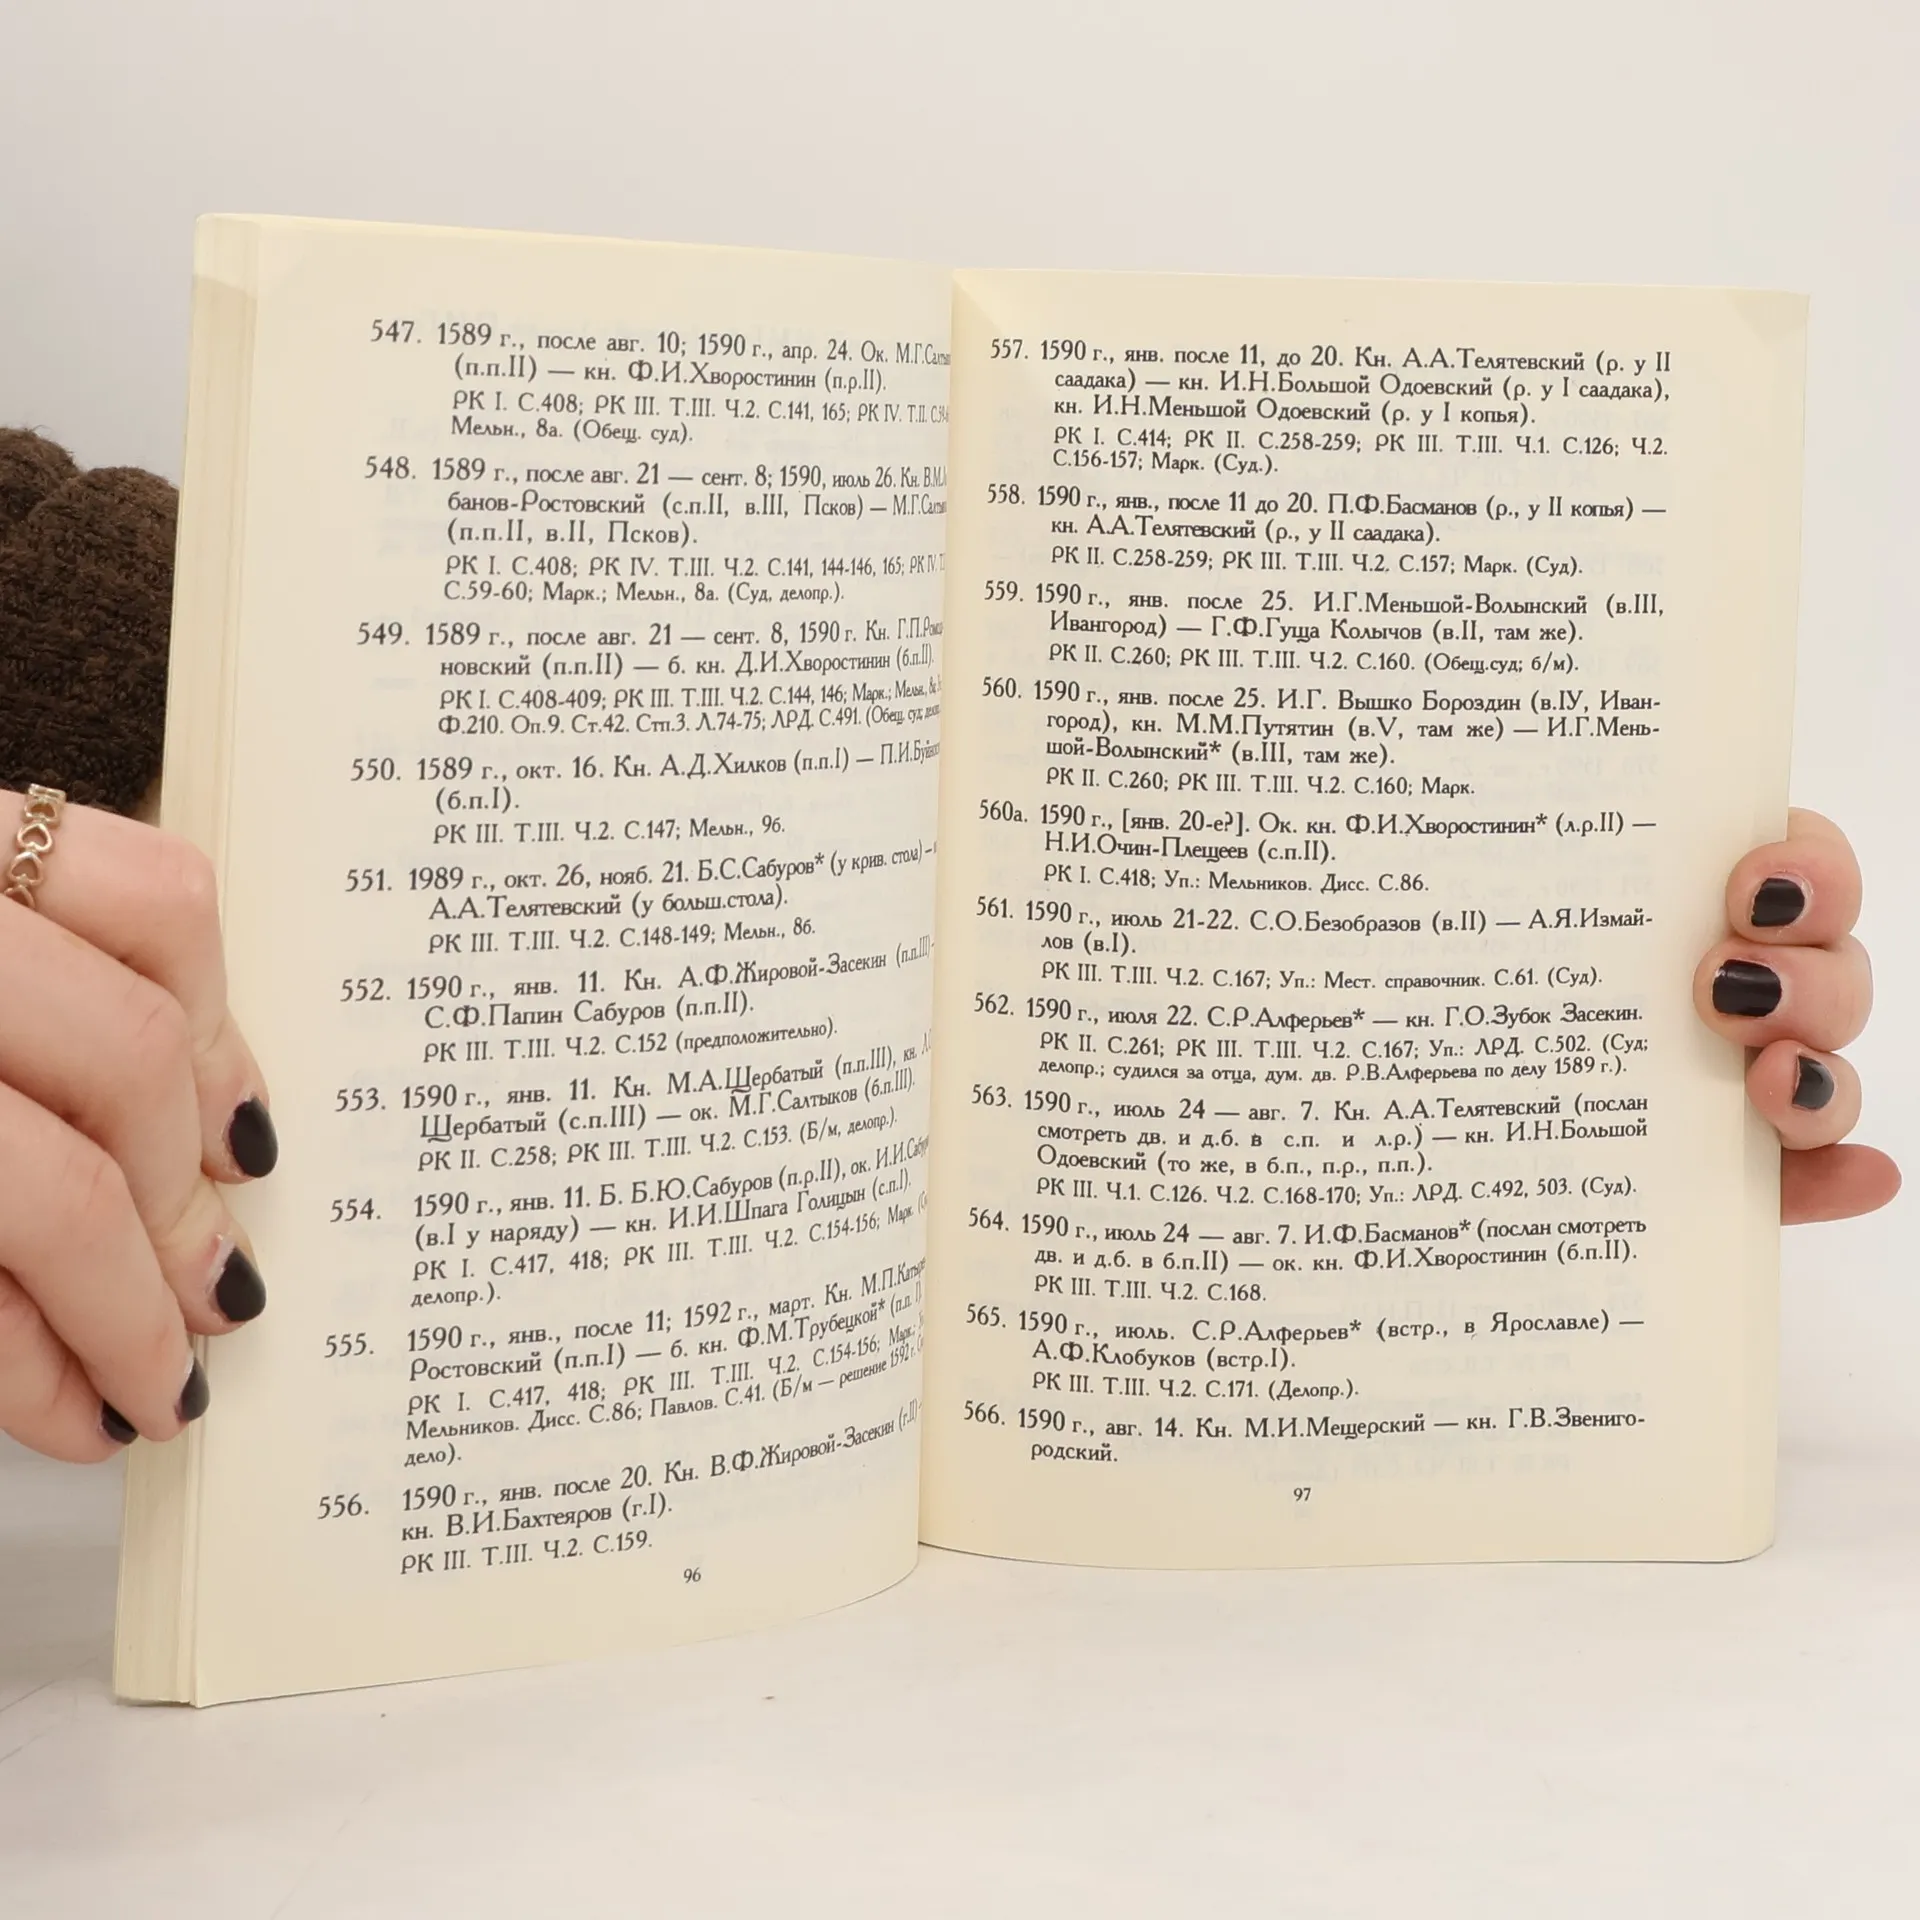 547. 1589 г., после авг. 10; 1590 г., апр. 24. Ок.
(п.п.II) — кн. Ф.И.Хворостинин (п.р.II).
РК I. С.408; РК III. Т.III. Ч.2. С.141, 165; РК IV. Т.II.
Мельн., 8а. (Обещ. суд).
548. 1589 г., после авг. 21 — сент. 8; 1590, июль 26. Кн.
банов-Ростовский (с.п.II, в.III, Псков) —
(п.п.II, в.II, Псков).
РК I. С.408; РК IV. Т.III. Ч.2. С.141, 144-146, 165; РК IV.
С.59-60; Марк.; Мельн., 8а. (Суд, делопр.).
549. 1589 г., после авг. 21 — сент. 8, 1590 г. Кн.
новский (п.п.II) — б. кн. Д.И.Хворостинин (б.п.II).
РК I. С.408-409; РК III. Т.III. Ч.2. С.144, 146; Марк.; Мельн.,
Ф.210. Оп.9. Ст.42. Стп.3. Л.74-75; ЛРД. С.491. (Обещ. суд;
550. 1589 г., окт. 16. Кн. А.Д.Хилков (п.п.I) —
(б.п.I).
РК III. Т.III. Ч.2. С.147; Мельн., 9б.
551. 1989 г., окт. 26, нояб. 21. Б.С.Сабуров* (у крив. стола) –
А.А.Телятевский (у больш.стола).
РК III. Т.III. Ч.2. С.148-149; Мельн., 8б.
552. 1590 г., янв. 11. Кн. А.Ф.Жировой-Засекин (п.п.III)
С.Ф.Папин Сабуров (п.п.II).
РК III. Т.III. Ч.2. С.152 (предположительно).
553. 1590 г., янв. 11. Кн. М.А.Щербатый (п.п.III), кн.
Щербатый (с.п.III) — ок. М.Г.Салтыков (б.п.III).
РК II. С.258; РК III. Т.III. Ч.2. С.153. (Б/м, делопр.).
554. 1590 г., янв. 11. Б. Б.Ю.Сабуров (п.р.II), ок.
(в.I у наряду) — кн. И.И.Шпага Голицын (с.п.I).
РК I. С.417, 418; РК III. Т.III. Ч.2. С.154-156; Марк.
делопр.).
555. 1590 г., янв., после 11; 1592 г., март. Кн.
Ростовский (п.п.I) — б. кн. Ф.М.Трубецкой* (п.п. I)
РК I. С.417, 418; РК III. Т.III. Ч.2. С.154-156; Марк.;
Мельников. Дисс. С.86; Павлов. С.41. (Б/м — решение 1592 г.
дело).
556. 1590 г., янв. после 20. Кн. В.Ф.Жировой-Засекин (г.II)
кн. В.И.Бахтеяров (г.I).
РК III. Т.III. Ч.2. С.159.
96
557. 1590 г., янв. после 11, до 20. Кн. А.А.Телятевский (р. у II
саадака) — кн. И.Н.Большой Одоевский (р. у I саадака),
кн. И.Н.Меньшой Одоевский (р. у I копья).
РК I. С.414; РК II. С.258-259; РК III. Т.III. Ч.1. С.126; Ч.2.
С.156-157; Марк. (Суд.).
558. 1590 г., янв., после 11 до 20. П.Ф.Басманов (р., у II копья) —
кн. А.А.Телятевский (р., у II саадака).
РК II. С.258-259; РК III. Т.III. Ч.2. С.157; Марк. (Суд).
559. 1590 г., янв. после 25. И.Г.Меньшой-Волынский (в.III,
Ивангород) — Г.Ф.Гуща Колычов (в.II, там же).
РК II. С.260; РК III. Т.III. Ч.2. С.160. (Обещ.суд; б/м).
560. 1590 г., янв. после 25. И.Г. Вышко Бороздин (в.IУ, Иван-
город), кн. М.М.Путятин (в.V, там же) — И.Г.Мень-
шой-Волынский* (в.III, там же).
РК II. С.260; РК III. Т.III. Ч.2. С.160; Марк.
560а. 1590 г., [янв. 20-е?]. Ок. кн. Ф.И.Хворостинин* (л.р.II) —
Н.И.Очин-Плещеев (с.п.II).
РК I. С.418; Уп.: Мельников. Дисс. С.86.
561. 1590 г., июль 21-22. С.О.Безобразов (в.II) — А.Я.Измай-
лов (в.I).
РК III. Т.III. Ч.2. С.167; Уп.: Мест. справочник. С.61. (Суд).
562. 1590 г., июля 22. С.Р.Алферьев* — кн. Г.О.Зубок Засекин.
РК II. С.261; РК III. Т.III. Ч.2. С.167; Уп.: ЛРД. С.502. (Суд;
делопр.; судился за отца, дум. дв. Р.В.Алферьева по делу 1589 г.).
563. 1590 г., июль 24 — авг. 7. Кн. А.А.Телятевский (послан
смотреть дв. и д.б. в с.п. и л.р.) — кн. И.Н.Большой
Одоевский (то же, в б.п., п.р., п.п.).
РК III. Ч.1. С.126. Ч.2. С.168-170; Уп.: ЛРД. С.492, 503. (Суд).
564. 1590 г., июль 24 — авг. 7. И.Ф.Басманов* (послан смотреть
дв. и д.б. в б.п.II) — ок. кн. Ф.И.Хворостинин (б.п.II).
РК III. Т.III. Ч.2. С.168.
565. 1590 г., июль. С.Р.Алферьев* (встр., в Ярославле) —
А.Ф.Клобуков (встр.I).
РК III. Т.III. Ч.2. С.171. (Делопр.).
566. 1590 г., авг. 14. Кн. М.И.Мещерский — кн. Г.В.Звениго-
родский.
97